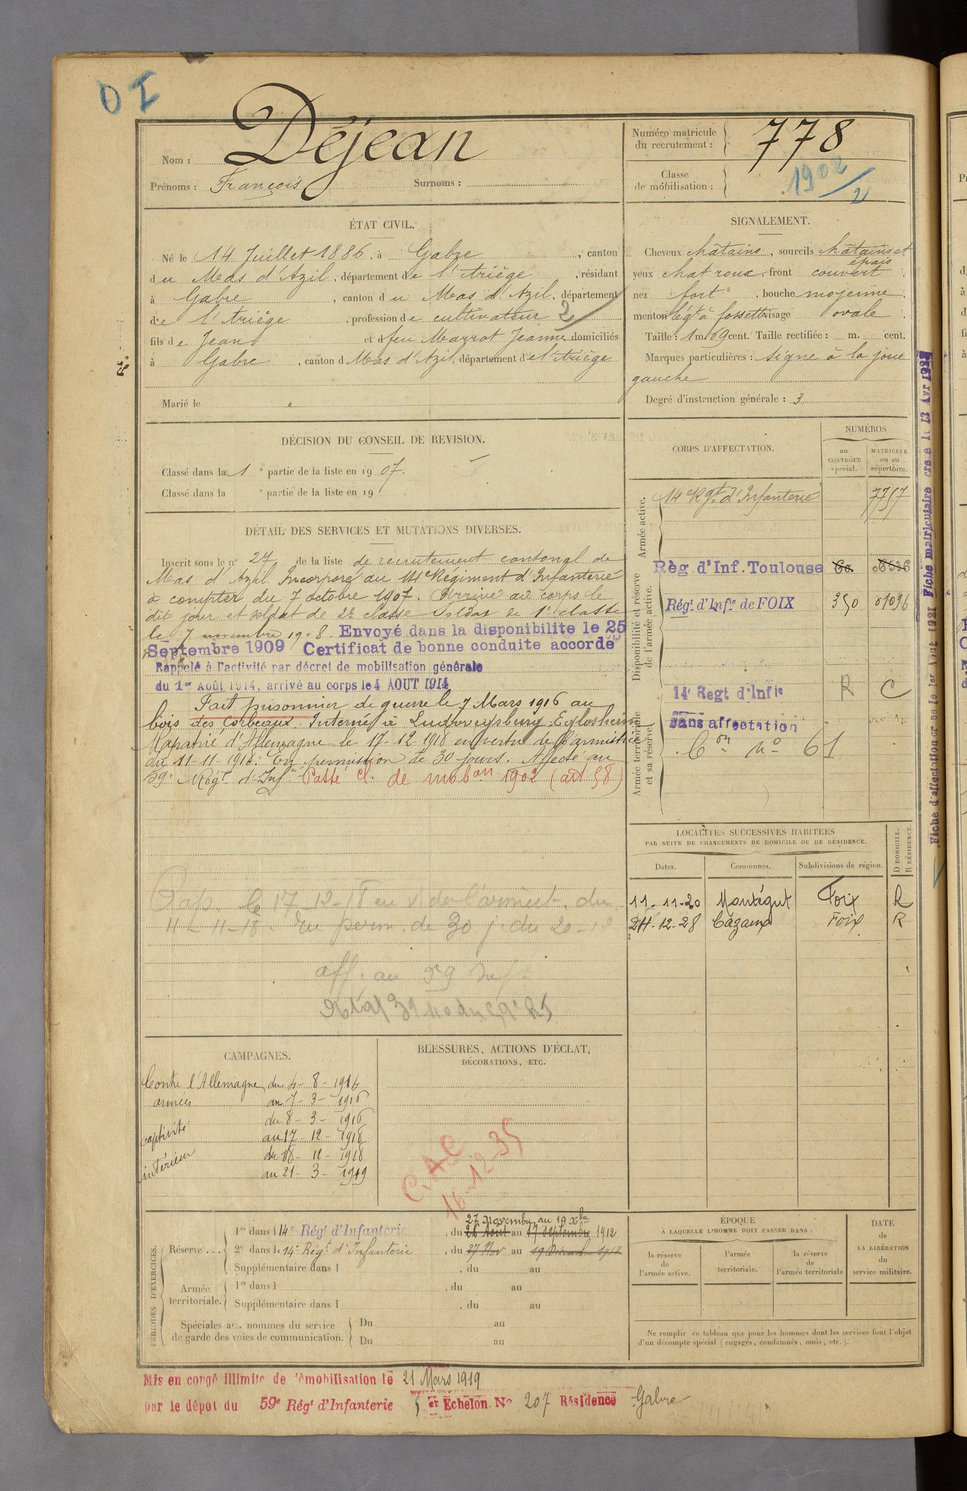 DI
Nom : Déjean
Prénoms : François Surnoms :
Numéro matricule du recrutement : 778
Classe de mobilisation : 1902/2
ÉTAT CIVIL.
Né le 14 Juillet 1886, à Gabre, canton
du Mas d'Azil, département de l'Ariège, résidant
à Gabre, canton du Mas d'Azil, département
de l'Ariège, profession de cultivateur 2/
fils de Jean et de feu Mazrot Jeanne domiciliés
à Gabre, canton d Mas d'Azil, département de l'Ariège
Marié le
SIGNALEMENT.
Cheveux châtains, sourcils châtains et épais
yeux chat roux, front couvert
nez fort, bouche moyenne
menton légt à fossette visage ovale
Taille : 1 m. 69 cent. Taille rectifiée : m. cent.
Marques particulières : Signe à la joue
gauche
Degré d'instruction générale : 3
DÉCISION DU CONSEIL DE REVISION.
Classé dans la 1e partie de la liste en 1907.
Classé dans la e partie de la liste en 19
CORPS D'AFFECTATION.
NUMÉROS
au CONTRÔLE spécial.
MATRICULE ou au répertoire.
Armée active.
14e Rgt d'Infanterie 7757
Disponibilité et réserve de l'armée active.
Rég. d'Inf. Toulouse
Régt d'Infie de FOIX 350 01096
Armée territoriale et sa réserve.
14e Regt d'Infie R C
Sans affectation
Con No 61
DÉTAIL DES SERVICES ET MUTATIONS DIVERSES.
Inscrit sous le no 27 de la liste de recrutement cantonal de
Mas d'Azil Incorporé au 14e Régiment d'Infanterie
à compter du 7 octobre 1907. Arrivé au corps le
dit jour et soldat de 2e classe Soldat de 1e classe
le 7 novembre 1908. Envoyé dans la disponibilité le 25
Septembre 1909 Certificat de bonne conduite accordé
Rappelé à l'activité par décret de mobilisation générale
du 1er Août 1914, arrivé au corps le 4 AOUT 1914
Fait prisonnier de guerre le 7 Mars 1916 au
bois des Corbeaux. Interné à Ludwigsburg Eglosheim
Rapatrié d'Allemagne le 17-12 1918 en vertu de l'armistice
du 11-11 1918. En permission de 30 jours. Affecté au
59e Régt d'Infie Passé cl. de mobon 1902 (art 58)
Rap. le 17-12-18 en v. de l'armist. du
11-11-18. En perm. de 30 j. du 20-12
aff. au 59 Inf
LOCALITÉS SUCCESSIVES HABITÉES
PAR SUITE DE CHANGEMENTS DE DOMICILE OU DE RÉSIDENCE.
Dates. Communes. Subdivisions de région. D DOMICILE. R RÉSIDENCE.
11-11-20 Montégut Foix R
24-12-28 Cazaux Foix R
CAMPAGNES.
Contre l'Allemagne du 4-8-1914
armées au 7-3-1916
du 8-3-1916
captivité au 17-12-1918
intérieur du 18-12-1918
au 21-3-1919
BLESSURES, ACTIONS D'ÉCLAT,
DÉCORATIONS, ETC.
C.A.C.
16-12-35
PÉRIODES D'EXERCICES.
Réserve ... 1re dans l 14e Régt d'Infanterie, du 27 Novembre au 19 Xbre 26 Août au 17 Septembre 1912
2e dans l 14e Régt d'Infanterie, du 27 Nov au 19 Décemb 1912
Supplémentaire dans l , du au
Armée territoriale. 1re dans l , du au
Supplémentaire dans l , du au
Spéciales aux hommes du service de garde des voies de communication. Du au
Du au
ÉPOQUE
À LAQUELLE L'HOMME DOIT PASSER DANS :
la réserve de l'armée active. l'armée territoriale. la réserve de l'armée territoriale
DATE DE LA LIBÉRATION du service militaire.
Ne remplir ce tableau que pour les hommes dont les services font l'objet
d'un décompte spécial (engagés, condamnés, omis, etc.).
Mis en congé illimité de démobilisation le 21 Mars 1919
par le dépôt du 59e Régt d'Infanterie 5 er Echelon No 207 Résidence Gabre